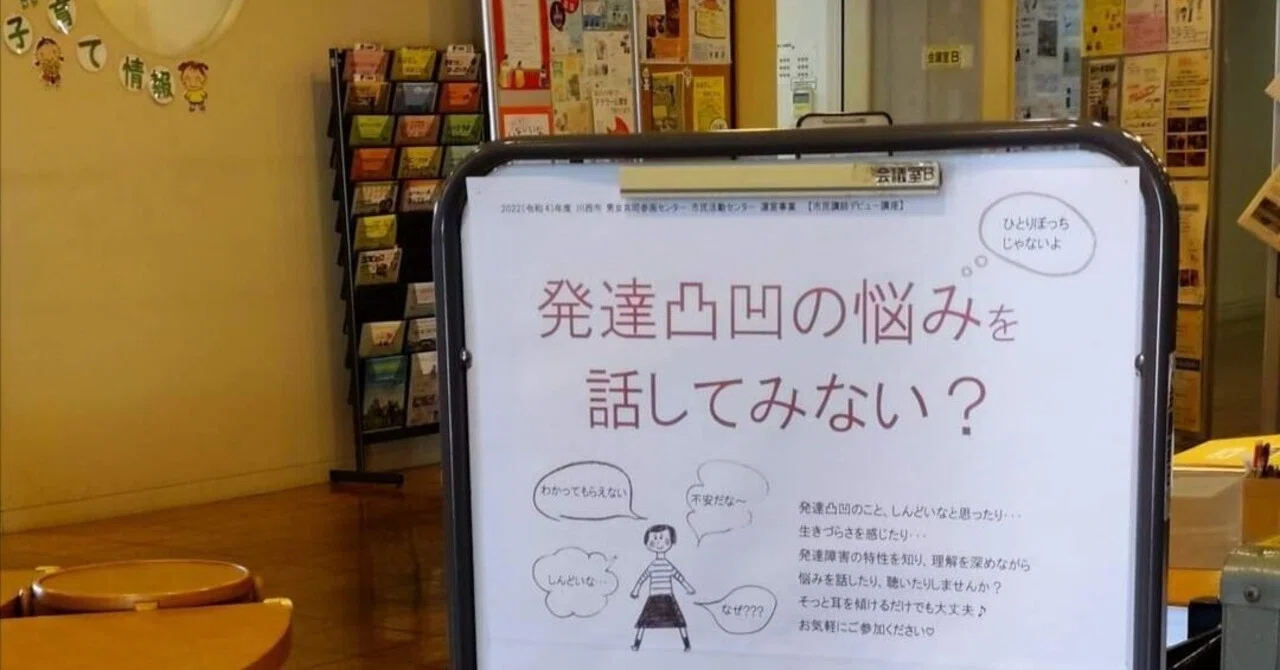 子育て情報
会議室B
会議室B
2022(令和4)年度 川西市 男女共同参画センター 市民活動センター 運営事業 【市民講師デビュー講座】
ひとりぼっち
じゃないよ
発達凸凹の悩みを
話してみない？
わかってもらえない
不安だな～
しんどいな…
なぜ???
発達凸凹のこと、しんどいなと思ったり･･･
生きづらさを感じたり･･･
発達障害の特性を知り、理解を深めながら
悩みを話したり、聴いたりしませんか？
そっと耳を傾けるだけでも大丈夫♪
お気軽にご参加ください♡